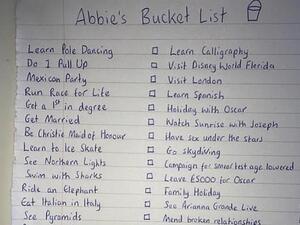 Abbie's Bucket List
Learn Pole Dancing
Do 1 Pull Up
Mexican Party
Run Race for Life
Get a 1st in degree
Get Married
Be Christie Maid of Honour
Learn to Ice Skate
See Northern Lights
Swim with Sharks
Ride an Elephant
Eat Italian in Italy
See Pyramids
Learn Calligraphy
Visit Disney World Florida
Visit London
Learn Spanish
Holiday with Oscar
Watch Sunrise with Joseph
Have sex under the stars
Go skydiving
Campaign for smear test age lowered
Leave £5000 for Oscar
Family Holiday
See Arianna Grande Live
Mend broken relationships